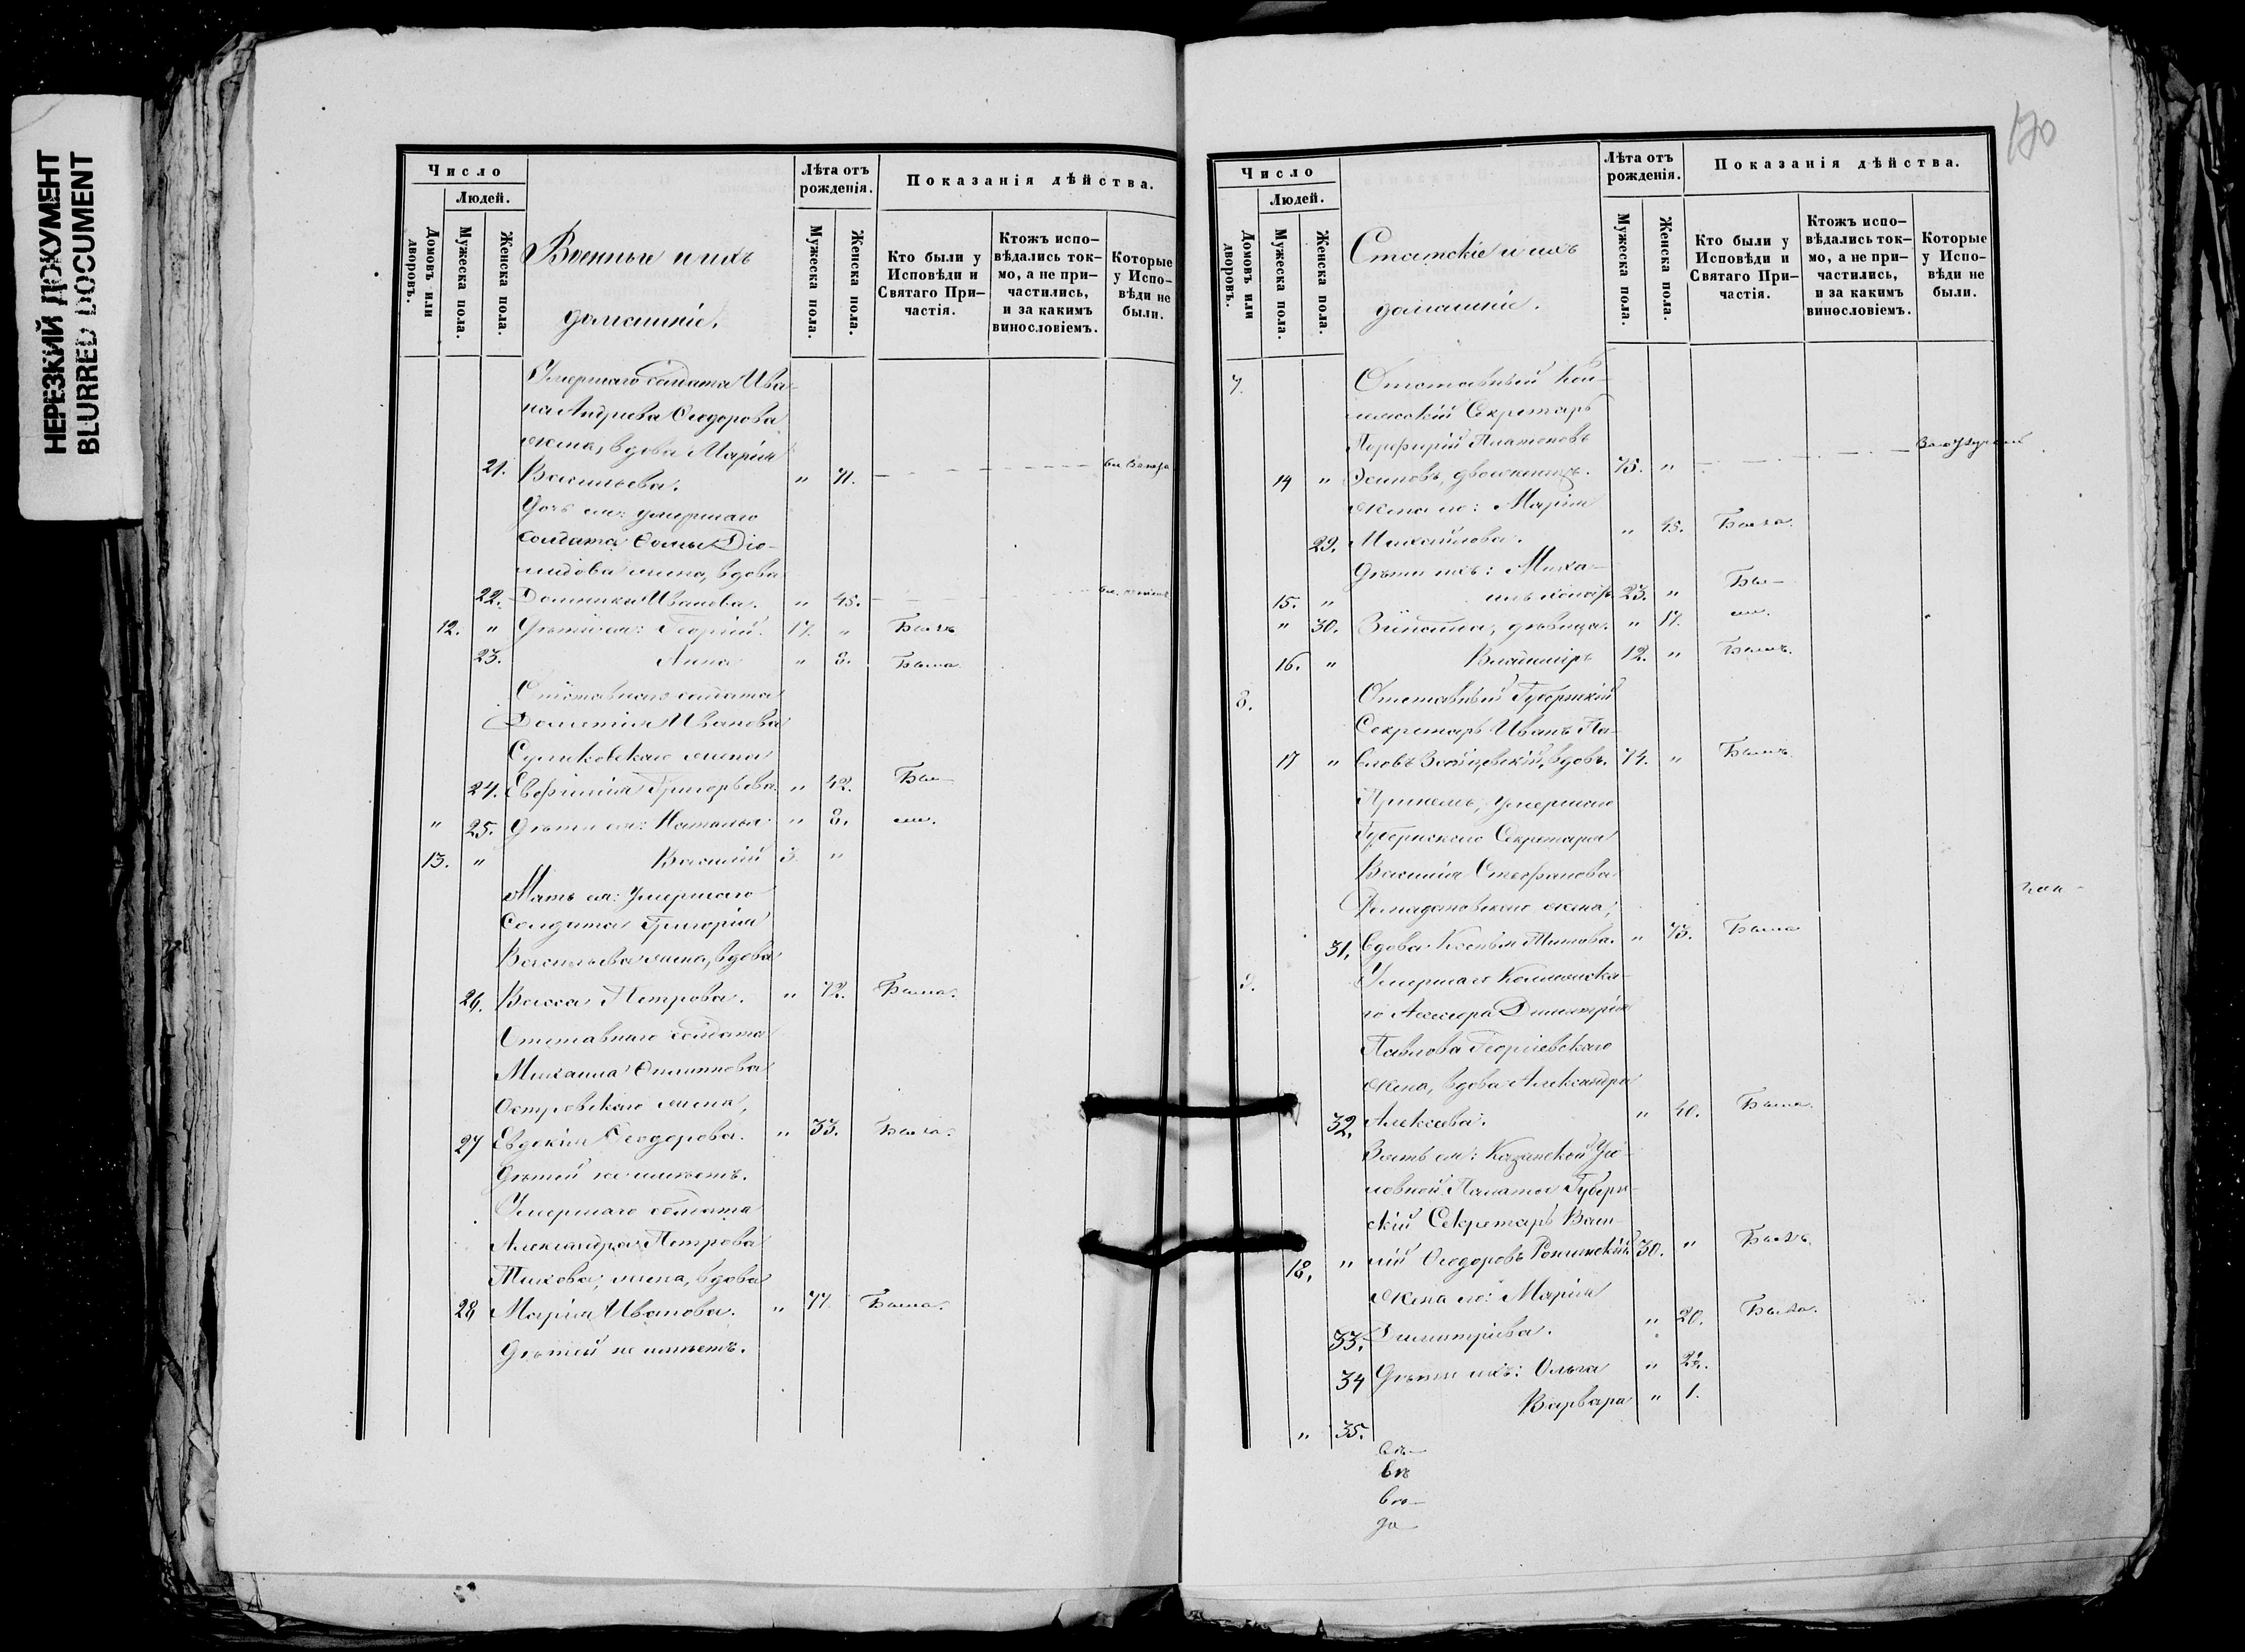 НЕРЕЗКИЙ ДОКУМЕНТ
BLURRED DOCUMENT
Число
Людей.
Домовъ или дворовъ.
Мужеска пола.
Женска пола.
Военные и ихъ
домашніе.
Лѣта отъ рожденія.
Мужеска пола.
Женска пола.
Показанія дѣйства.
Кто были у Исповѣди и Святаго При-частія.
Ктожъ испо-вѣдались ток-мо, а не при-частились, и за какимъ винословіемъ.
Которые у Испо-вѣди не были.
Умершаго солдата Ива-
на Андреева Ѳеодорова
жена, вдова Марія
21. Васильева. " 71.
Дочь ея: умершаго
солдата Ѳомы Діо-
мидова жена, вдова
22. Домника Иванова. " 45.
12. " Дѣти ея: Георгій. 17. " Былъ
23. Анна " 8. Была
Отставнаго солдата
Дометія Иванова
Суликовскаго жена
24. Евфимія Григорьева. " 42. Бы-
" 25. Дѣти ея: Наталья " 8. ли.
13. " Василій 3. "
Мать ея: умершаго
Солдата Григорія
Васильева жена, вдова
26. Васса Петрова. " 72. Была.
Отставнаго солдата
Михаила Филиппова
Островскаго жена,
27 Евдокія Ѳеодорова. " 33. Была.
Дѣтей не имѣетъ.
Умершаго солдата
Александра Петрова
жена, вдова
28 Марія Иванова. " 77. Была.
Дѣтей не имѣетъ.
170
Число
Людей.
Домовъ или дворовъ.
Мужеска пола.
Женска пола.
Статскіе и ихъ
домашніе.
Лѣта отъ рожденія.
Мужеска пола.
Женска пола.
Показанія дѣйства.
Кто были у Исповѣди и Святаго При-частія.
Ктожъ испо-вѣдались ток-мо, а не при-частились, и за какимъ винословіемъ.
Которые у Испо-вѣди не были.
7. Отставный Кол-
лежскій Секретарь
Порфирій Платоновъ
14 " двоеженецъ. 75. "
Жена его: Марія
29. Михайлова. " 45. Была.
Дѣти ихъ: Миха-
15. " илъ 23. " Бы-
" 30. дѣвица. " 17. ли.
16. " Владиміръ 12. " Былъ.
8. Отставный Губернскій
Секретарь Иванъ Па-
17 " вловъ вдовъ. 74. " Былъ
умершаго
Губернскаго Секретаря
Василія Стефанова
жена,
31. вдова Ксенія Титова. " 73. Была
9. Умершаго Коллежска-
го Ассесора Димитрія
Павлова Георгіевскаго
жена, вдова Александра
32. Алексѣева. " 40. Была.
Зять ея: Казанской Уго-
ловной Палаты Губерн-
скій Секретарь Васи-
18. " лій Ѳеодоровъ 30. " Былъ.
Жена его: Марія
33. Димитріева. " 20. Была.
34 Дѣти ихъ: Ольга " 2½.
" 35. Варвара " 1.